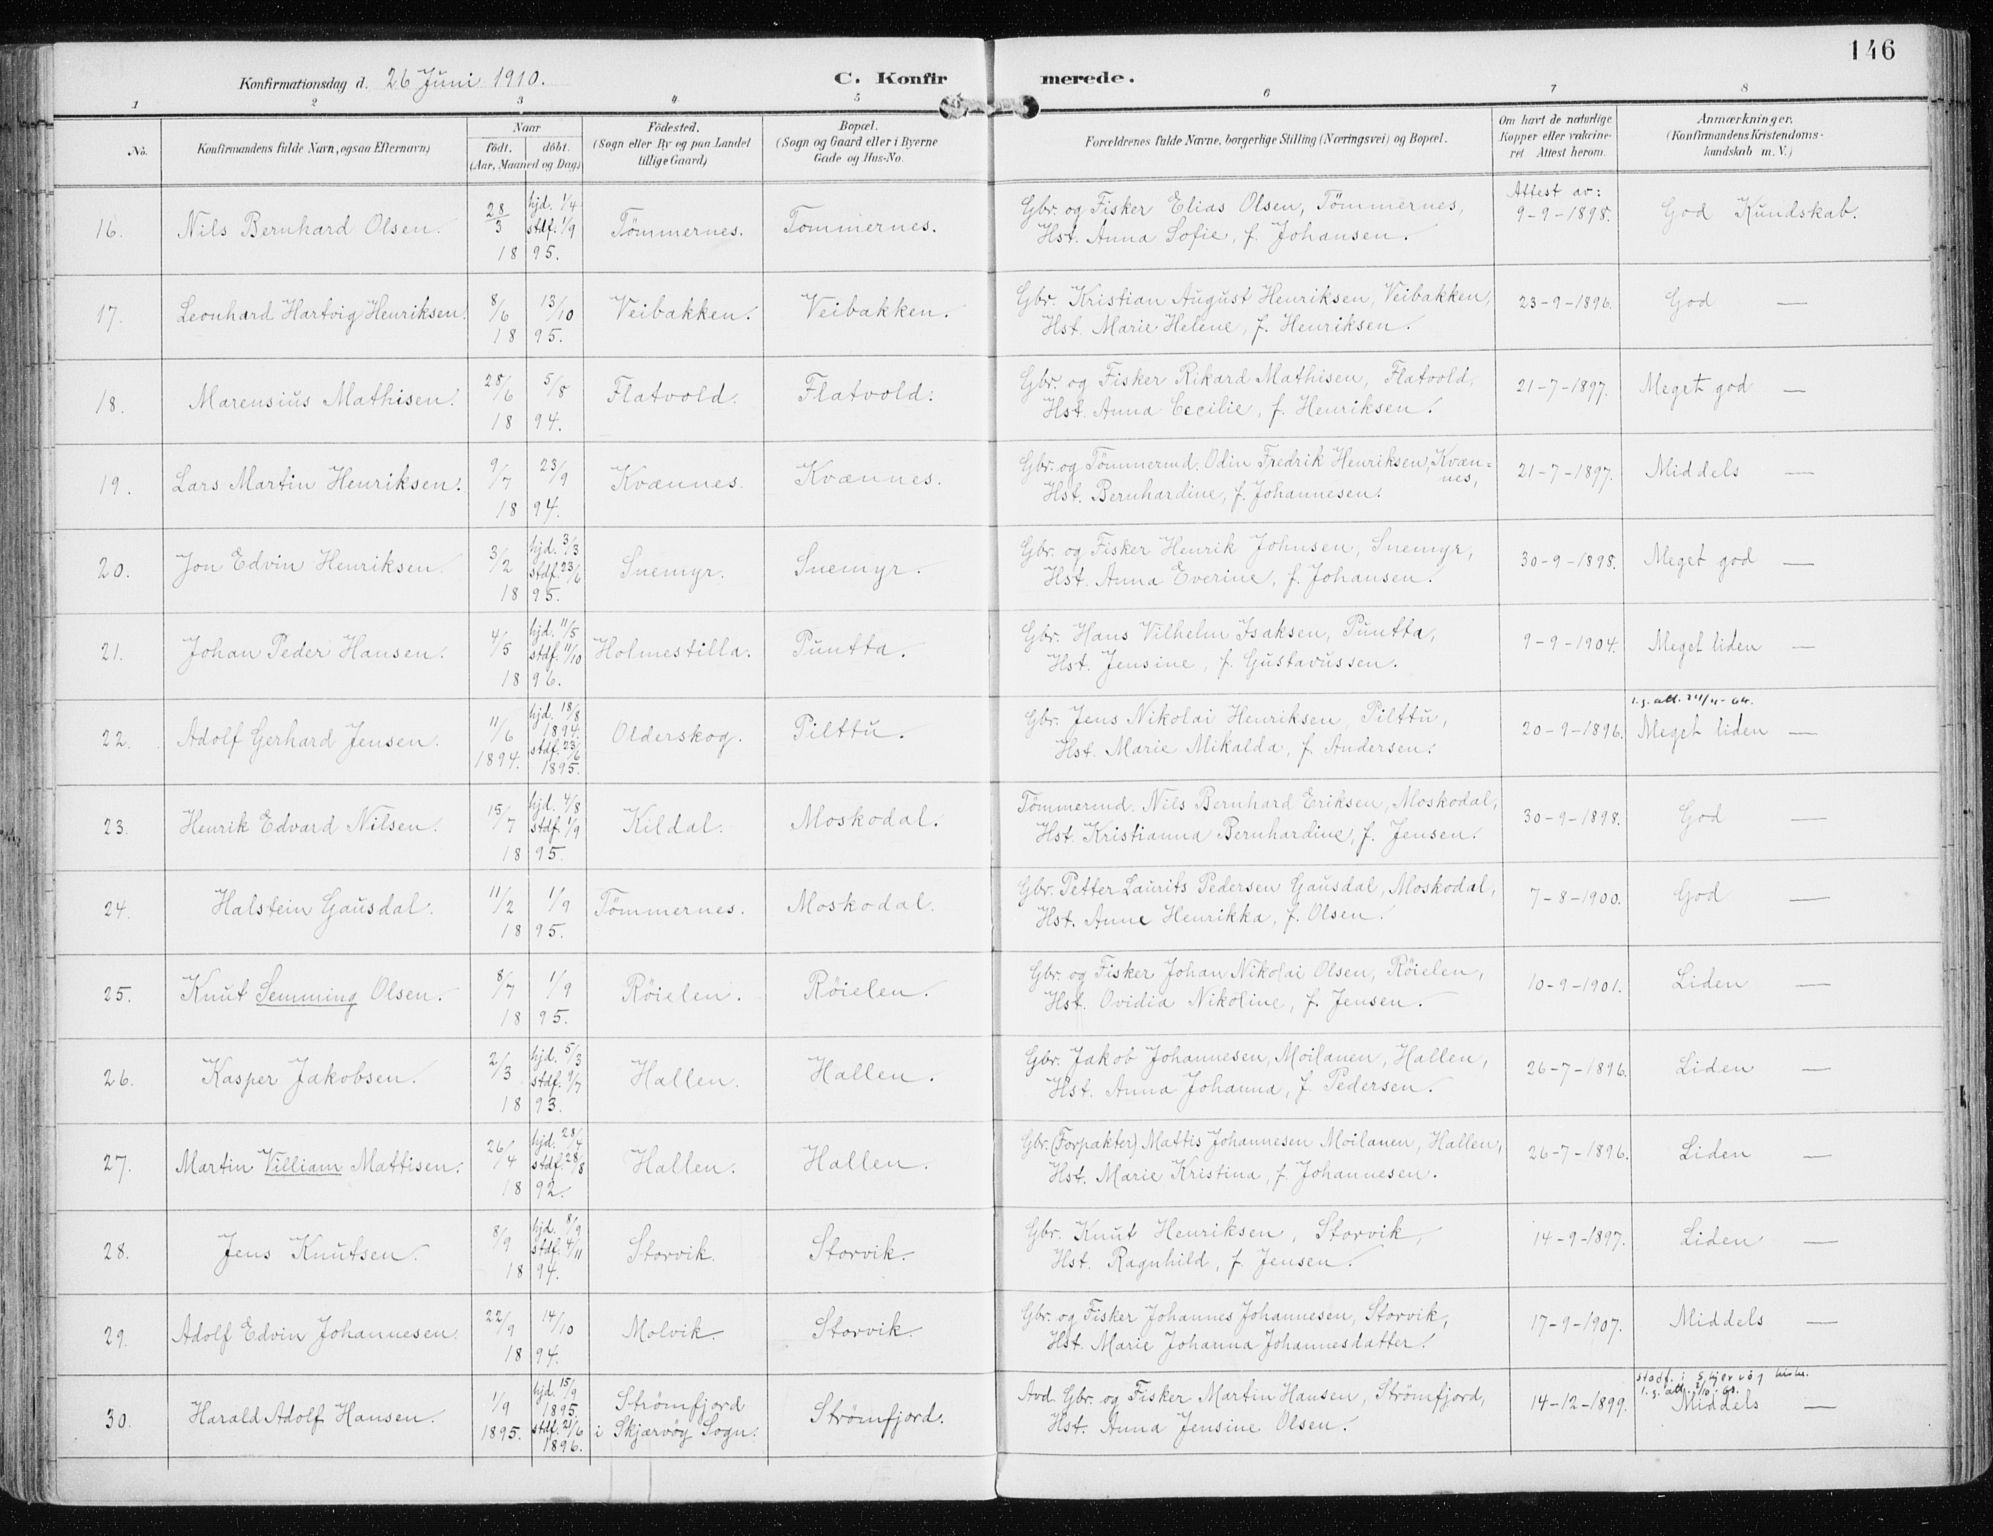 146
Konfirmationsdag d. 26 Juni 1910.
C. Konfirmerede.
1 2 3 4 5 6 7 8
No.
Konfirmandens fulde Navn, ogsaa Efternavn)
Naar
født. døbt.
(Aar, Maaned og Dag)
Födested.
(Sogn eller By og paa Landet
tillige Gaard)
Bopæl.
(Sogn og Gaard eller i Byerne
Gade og Hus-No.
Forældrenes fulde Navne, borgerlige Stilling (Næringsvei) og Bopæl.
Om havt de naturlige
Kopper eller vakcine-
ret Attest herom.
Anmærkninger.
(Konfirmandens Kristendoms-
kundskab m. V.)
16. Nils Bernhard Olsen. 28/3 1895. hjd. 1/4 stdf. 1/9 Tömmernes. Tommernes. Gbr. og Fisker Elias Olsen, Tömmernes,
Hst. Anna Sofie, f. Johansen. Attest av: 9-9-1898. God Kundskab.
17. Leonhard Hartvig Henriksen. 8/6 13/10 1895. Veibakken. Veibakken. Gbr. Kristian August Henriksen, Veibakken,
Hst. Marie Helene, f. Henriksen. 23-9-1896. God —
18. Marensius Mathisen. 28/6 5/8 1894. Flatvold. Flatvold. Gbr. og Fisker Rikard Mathisen, Flatvold,
Hst. Anna Cecilie, f. Henriksen. 21-7-1897. Meget god —
19. Lars Martin Henriksen. 9/7 23/9 1894. Kvænnes. Kvænnes. Gbr. og Tömmermd. Odin Fredrik Henriksen, Kvæn=
nes,
Hst. Bernhardine, f. Johannesen. 21-7-1897. Middels —
20. Jon Edvin Henriksen. 3/2 hjd. 3/3 stdf. 23/6 1895. Snemyr. Snemyr. Gbr. og Fisker Henrik Johnsen, Snemyr,
Hst. Anna Everine, f. Johansen. 30-9-1898. Meget god —
21. Johan Peder Hansen. 4/5 hjd. 11/5 stdf. 11/10 1896. Holmestilla. Puntta. Gbr. Hans Vilhelm Isaksen, Puntta,
Hst. Jensine, f. Gustavussen. 9-9-1904. Meget liden —
22. Adolf Gerhard Jensen. 11/6 1894. hjd. 18/8 1894. stdf. 23/6 1895. Olderskog. Pilttu. Gbr. Jens Nikolai Henriksen, Pilttu,
Hst. Marie Mikalda, f. Andersen. 20-9-1896. Meget liden —
23. Henrik Edvard Nilsen. 15/7 hjd. 4/8 stdf. 1/9 1895. Kildal. Moskodal. Tömmermd. Nils Bernhard Eriksen, Moskodal,
Hst. Kristianna Bernhardine, f. Jensen. 30-9-1898. God —
24. Halstein Gausdal. 11/2 1/9 1895. Tömmernes. Moskodal. Gbr. Petter Laurits Pedersen Gausdal, Moskodal,
Hst. Anne Henrikka, f. Olsen. 7-8-1900. God —
25. Knut Semming Olsen. 8/7 1/9 1895. Röielen. Röielen. Gbr. og Fisker Johan Nikolai Olsen, Röielen,
Hst. Ovidia Nikoline, f. Jensen. 10-9-1901. Liden —
26. Kasper Jakobsen. 2/3 hjd. 5/3 stdf. 9/7 1893. Hallen. Hallen. Gbr. Jakob Johannesen, Moilanen, Hallen,
Hst. Anna Johanna, f. Pedersen. 26-7-1896. Liden —
27. Martin Villiam Mattisen. 26/4 hjd. 28/4 stdf. 28/8 1892. Hallen. Hallen. Gbr. (Forpakter) Mattis Johannesen Moilanen, Hallen,
Hst. Marie Kristina, f. Johannesen. 26-7-1896. Liden —
28. Jens Knutsen. 8/9 hjd. 8/9 stdf. 4/11 1894. Storvik. Storvik. Gbr. Knut Henriksen, Storvik,
Hst. Ragnhild, f. Jensen. 14-9-1897. Liden —
29. Adolf Edvin Johannesen. 22/9 14/10 1894. Molvik. Storvik. Gbr. og Fisker Johannes Johannesen, Storvik,
Hst. Marie Johanna Johannesdatter. 17-9-1907. Middels —
30. Harald Adolf Hansen. 1/9 1895. hjd. 15/9 1895. stdf. 21/6 1896. Strömfjord
i Skjærvöy Sogn. Strömfjord. Avd. Gbr. og Fisker Martin Hansen, Strömfjord,
Hst. Anna Jensine Olsen. 14-12-1899. Middels —